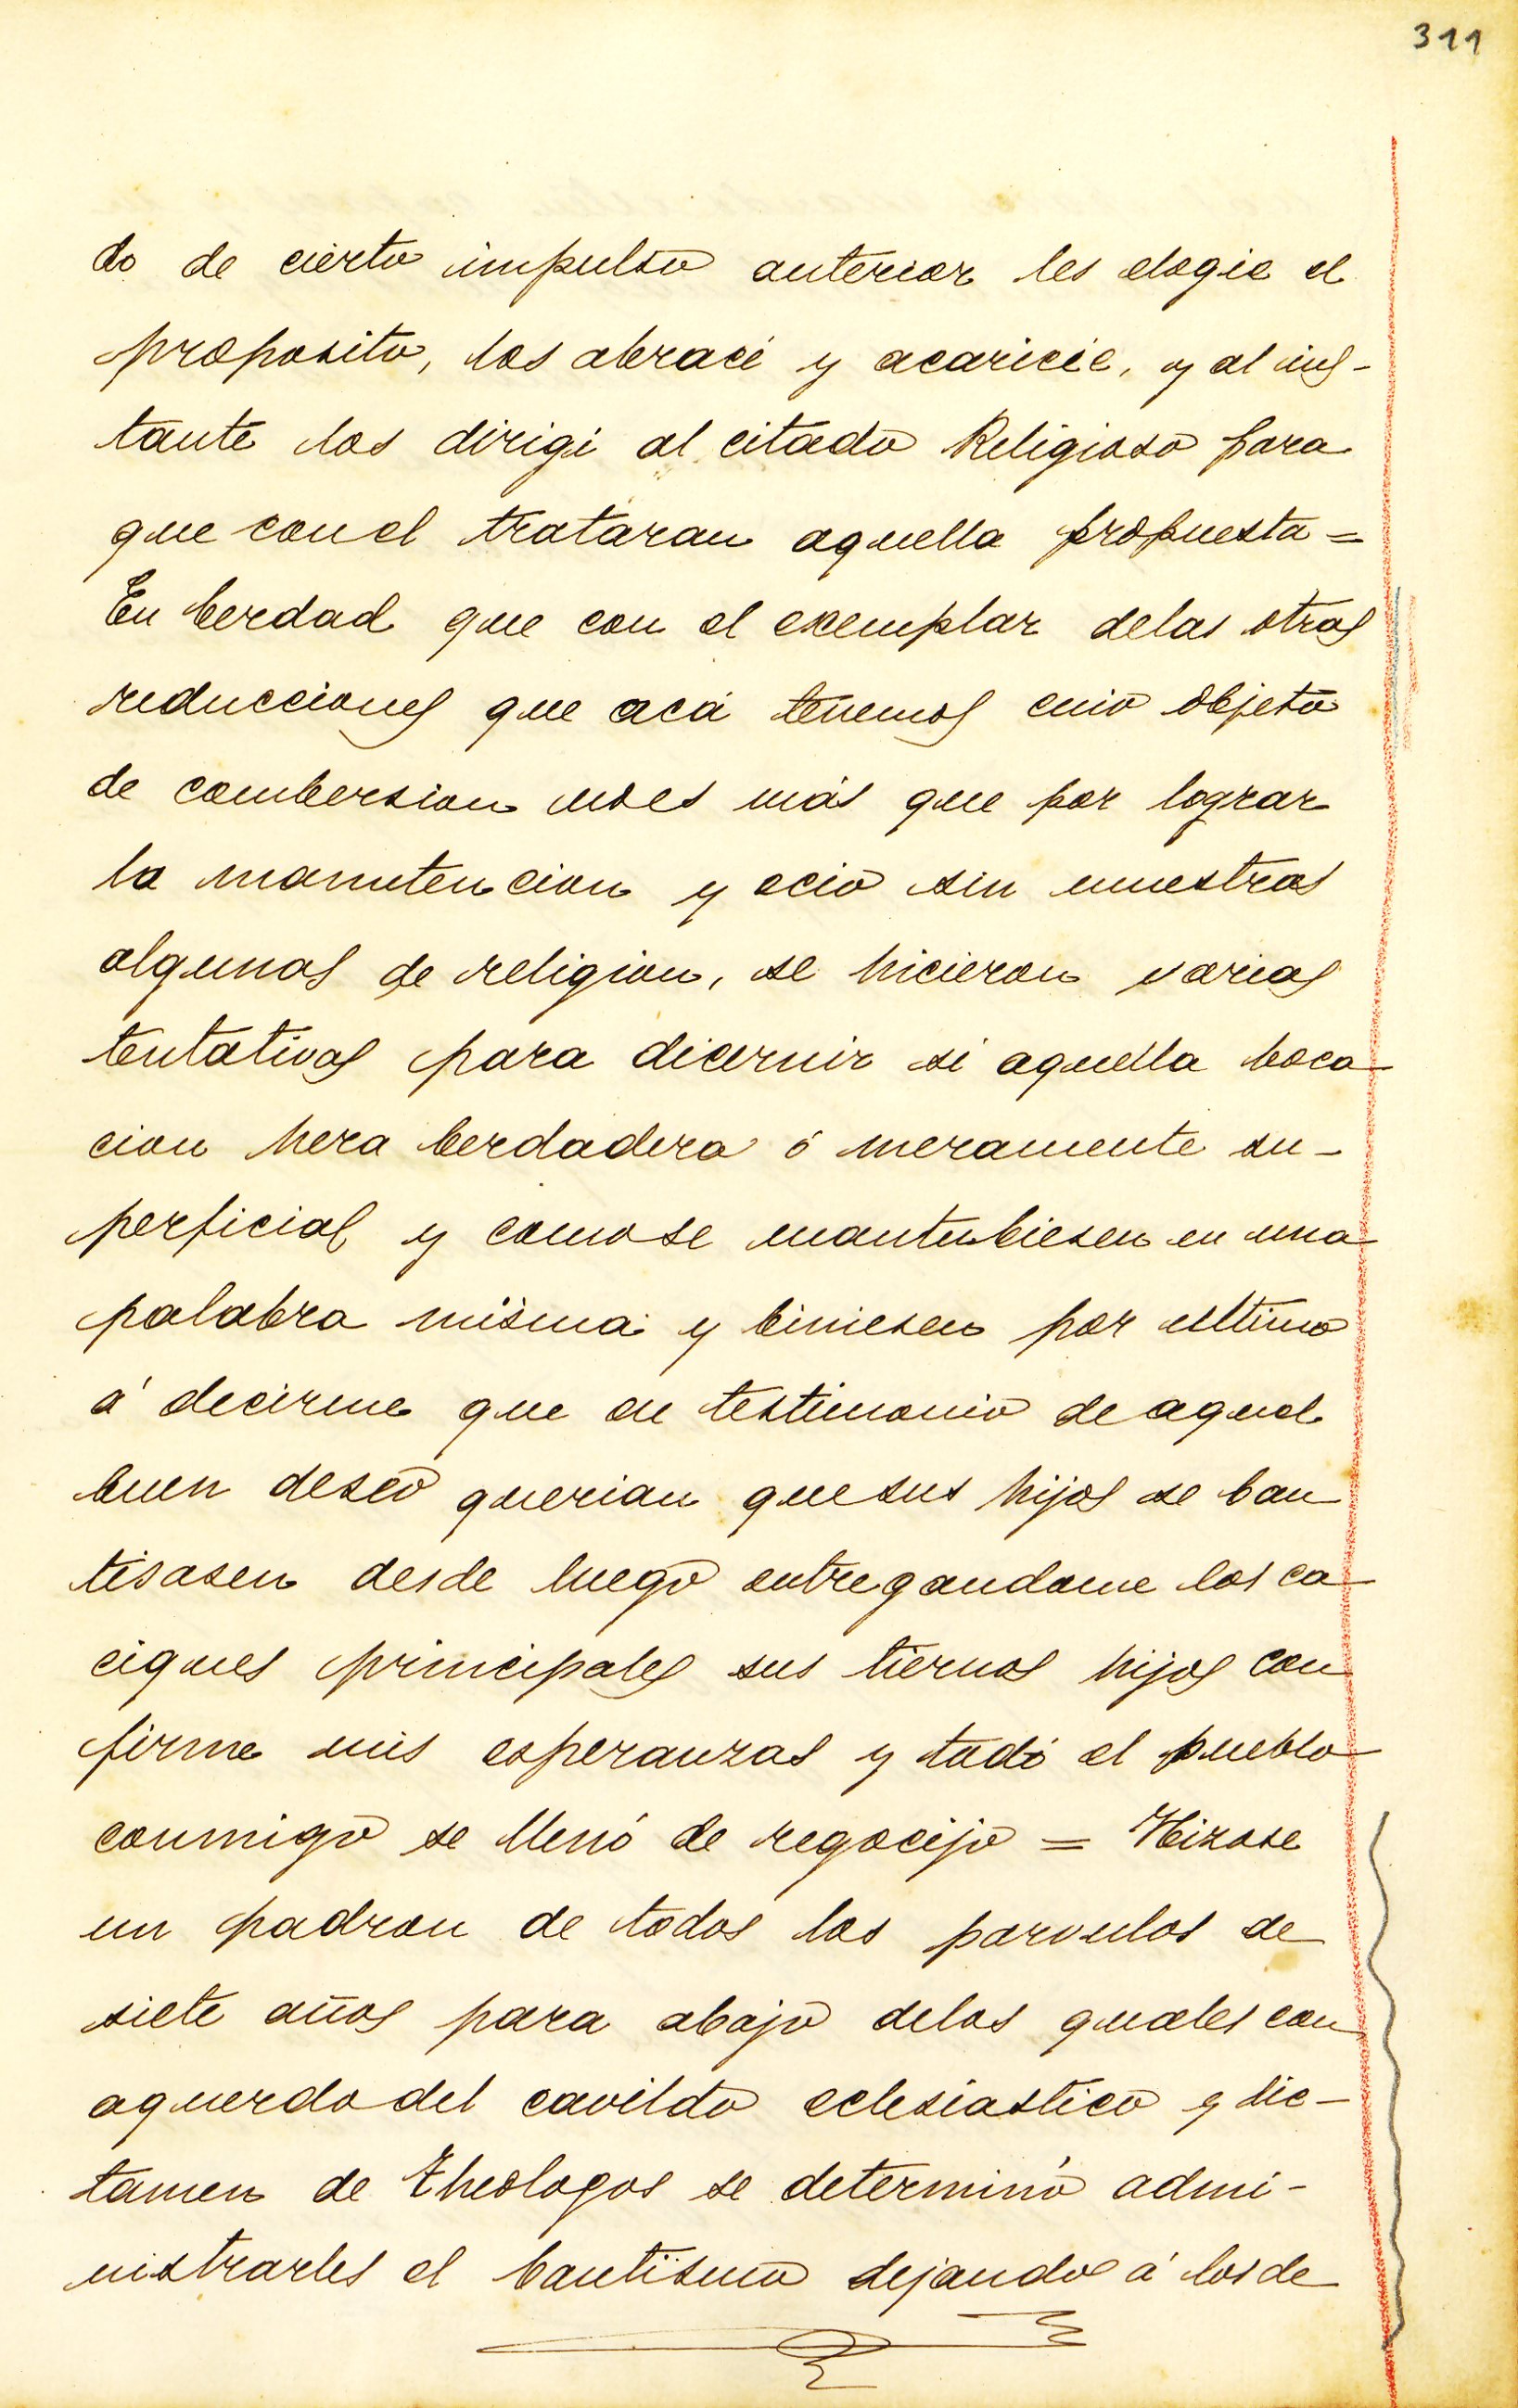 311
do de cierto impulso anterior les elogie el
proposito, los abracé y acaricié, y al ins-
tante los dirigi al citado Religioso para
que conel trataran aquella propuesta =
En berdad que con el exemplar delas otras
reducciones que acá tenemos cuio objeto
de combersion noes más que por lograr
la manutencion y ocio sin muestras
algunas de religion, se hicieron varias
tentativas para dicernir si aquella boca
cion hera berdadera ó meramente su-
perficial y comose mantubiesen en una
palabra misma y biniesen por ultimo
á decirme que en testimonio de aquel
buen deseo querian quesus hijos se bau
tisasen desde luego entregandome los ca
ciques principales sus tiernos hijos con
firme mis esperanzas y todo el pueblo
conmigo se llenó de regocijo = Hizose
un padron de todos los parvulos de
siete años para abajo delos quales con
aquerdo del cavildo eclesiastico y dic-
tamen de Theologos se determinó admi-
nistrarles el bautismo dejando á los de